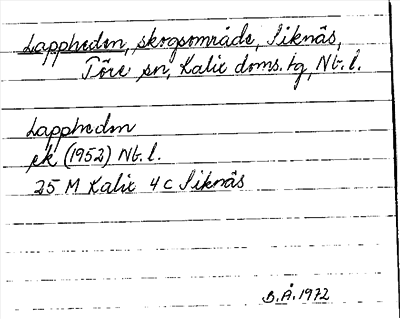 Lappheden, skogsområde, Siknäs,
Töre sn, Kalix doms. tg, Nb. l.
Lappheden
ek (1952) Nb. l.
25 M Kalix 4 c Siknäs
B. Å. 1972